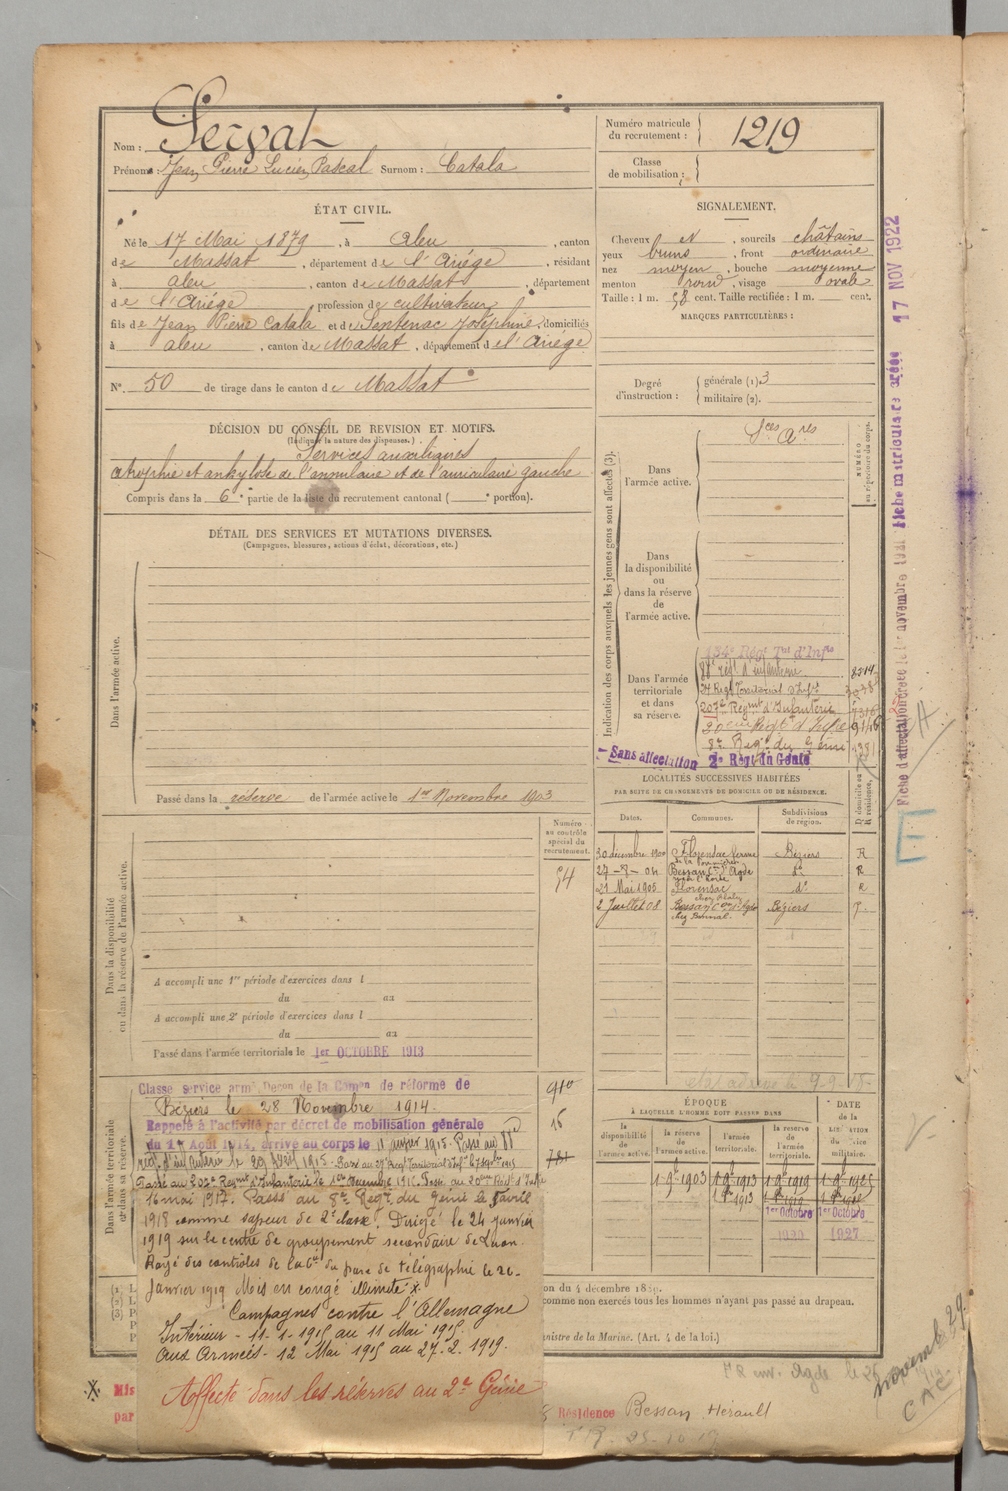 Nom : Servat
Prénoms : Jean Pierre Lucien Pascal Surnom : Catala
Numéro matricule du recrutement : 1219
Classe de mobilisation :
ÉTAT CIVIL.
Né le 17 Mai 1879, à Aleu, canton
de Massat, département de l'Ariége, résidant
à aleu, canton de Massat, département
de l'Ariége, profession de cultivateur
fils de Jean Pierre Catala et de Sentenac Joséphine, domiciliés
à aleu, canton de Massat, département de l'Ariége
N°. 50 de tirage dans le canton de Massat
DÉCISION DU CONSEIL DE REVISION ET MOTIFS.
(Indiquer la nature des dispenses.)
Services auxiliaires
atrophie et ankylose de l'annulaire et de l'auriculaire gauche
Compris dans la 6e partie de la liste du recrutement cantonal ( e portion).
DÉTAIL DES SERVICES ET MUTATIONS DIVERSES.
(Campagnes, blessures, actions d'éclat, décorations, etc.)
Dans l'armée active.
Passé dans la réserve de l'armée active le 1er Novembre 1903
Dans la disponibilité
ou dans la réserve de l'armée active.
A accompli une 1re période d'exercices dans l
du au
A accompli une 2e période d'exercices dans l
du au
Passé dans l'armée territoriale le 1er OCTOBRE 1913
Numéro
au contrôle
spécial du
recrutement.
54
910
16
781
Dans l'armée territoriale
et dans sa réserve.
Classe service armé Décon de la Comon de réforme de
Béziers le 28 Novembre 1914.
Rappelé à l'activité par décret de mobilisation générale
du 1er Août 1914, arrivé au corps le 11 janvier 1915. Passé au 88e
rég. d'infanterie le 29 1915. Passé au 27e Régt Territorial d'Infie le 7 1915
Passé au 207e Régiment d'Infanterie le 1er Novembre 1916. Passé au 20eme Régt d'Infie
16 mai 1917. Passé au 8e Régt du génie le avril
1918 comme sapeur de 2e classe. Dirigé le 24 janvier
1919 sur le centre de groupement secondaire de Laon.
Rayé des contrôles de la Cie du parc de télégraphie le 26
Janvier 1919 Mis en congé illimité X.
Campagnes contre l'Allemagne
Intérieur - 11-1-1915 au 11 Mai 1915.
aux Armées - 12 Mai 1915 au 27.2.1919.
Affecté dans les réserves au 2e Génie
X. Mis
par
SIGNALEMENT.
Cheveux N, sourcils châtains
yeux bruns, front ordinaire
nez moyen, bouche moyenne
menton rond, visage ovale
Taille : 1 m. 58 cent. Taille rectifiée : 1 m. cent.
MARQUES PARTICULIÈRES :
Degré d'instruction : générale (1). 3
militaire (2).
Indication des corps auxquels les jeunes gens sont affectés (3).
NUMÉRO
au répertoire du corps.
Dans
l'armée active.
Sces Ares
Dans
la disponibilité
ou
dans la réserve
de
l'armée active.
Dans l'armée
territoriale
et dans
sa réserve.
134e Régt Tal d'Infie
88e régt d'infanterie
27 Régt Territorial d'Infie
207e Régmt d'Infanterie
20eme Régt d'Infie 9146
8e Régt du Génie
Sans affectation 2e Régt du Génie
LOCALITÉS SUCCESSIVES HABITÉES
PAR SUITE DE CHANGEMENTS DE DOMICILE OU DE RÉSIDENCE.
Dates. Communes. Subdivisions de région. D. domicile ou R. résidence.
30 décembre 1900 Florensac ferme Béziers R
27-8-04 Bessan Cton d'Agde do R
21 Mai 1905 Florensac do R
2 Juillet 08 Bessan Cton d'Agde Béziers
ÉPOQUE
À LAQUELLE L'HOMME DOIT PASSER DANS
DATE
de la
LIBÉRATION
du service
militaire.
la disponibilité de l'armée active.
la réserve de l'armée active.
l'armée territoriale.
la réserve de l'armée territoriale.
1 9bre 1903 1 9bre 1913 1 9bre 1919 1 9bre 1925
1er Octobre 1er Octobre
1927
on du 4 décembre 1889.
comme non exercés tous les hommes n'ayant pas passé au drapeau.
ministre de la Marine. (Art. 4 de la loi.)
Résidence Bessan, Herault
25-10-19
novembre 29
CAC
Fiche matriculaire créée 17 NOV 1922